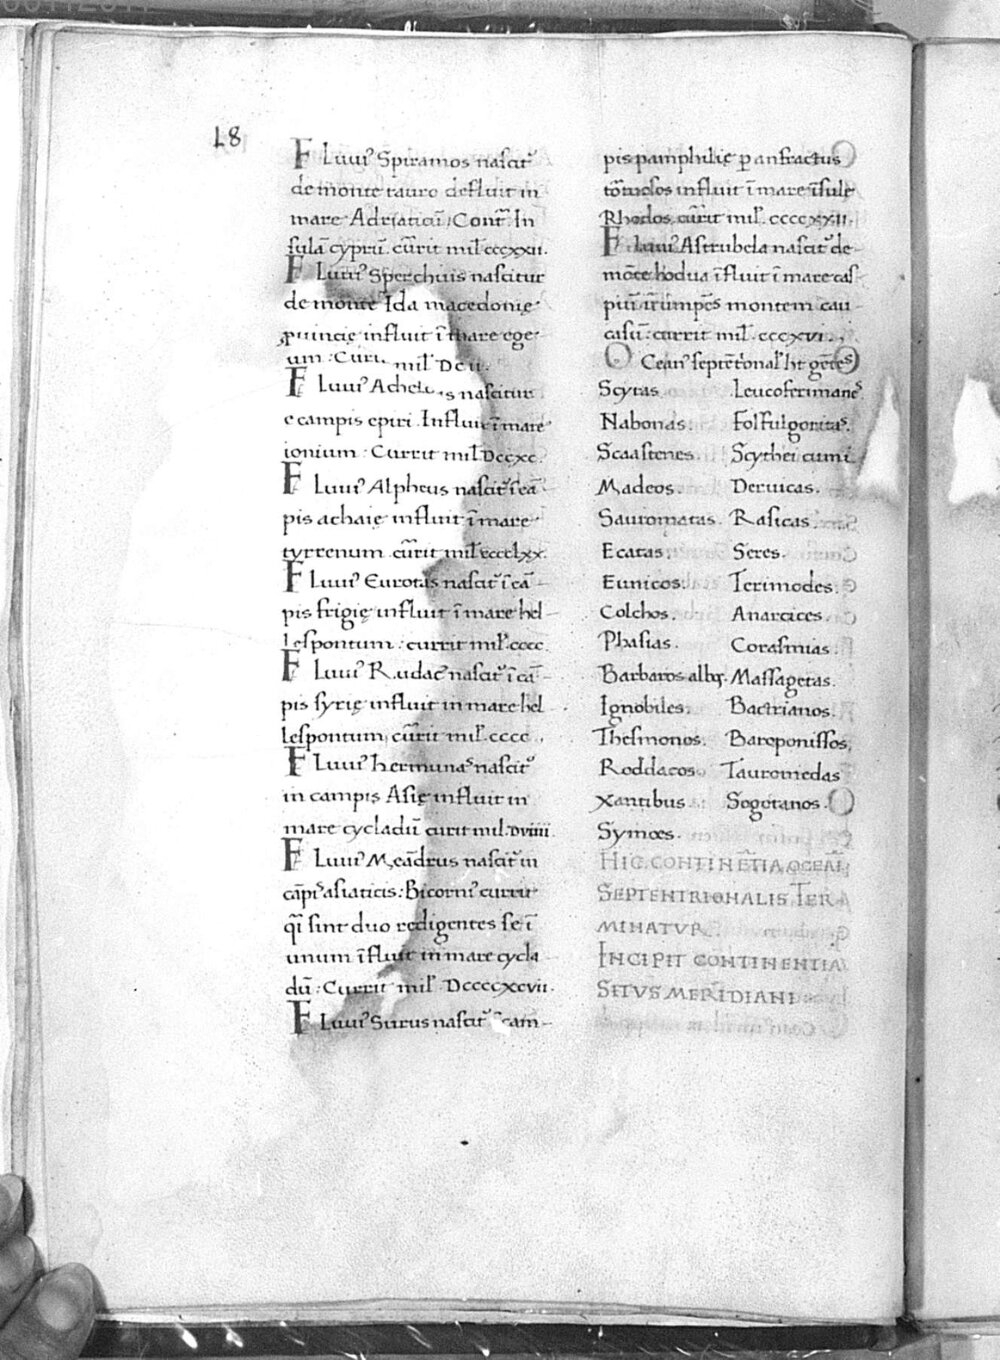 L8
Fluui᾽ Spiramos nascit᾽
de monte tauro defluit in
mare Adriaticū. Cont̄ In
sulā cyprū. cūrit mil̄ cccxxii.
Fluui᾽ Sperchius nascitur
de monte Ida macedonię
ꝓuincię influit ī mare ege
um: Curr mil̄ Dcii.
Fluui᾽ Achelo s nascitur
e campis epiri. Influit ī mare
ionium: Currit mil̄ Dccxc.
Fluui᾽ Alpheus nascit᾽ ī cā
pis achaię influit ī mare
tyrrenum. cūrit mil̄ cccclxx.
Fluui᾽ Eurotas nascit᾽ ī cā
pis frigię influit ī mare hel
lespontum: currit mil̄. cccc.
Fluui᾽ Rudac᾽ nascit᾽ ī cā
pis syrię influit in mare hel
lespontum, cūrit mil̄. cccc.
Fluui᾽ hermuna᾽ nascit᾽
in campis Asię influit in
mare cycladū curit mil. Dviiii.
Fluui᾽ Meādrus nascit᾽ in
cāpi᾽ asiaticis: Bicorni᾽ currit
qī sint duo redigentes se ī
unum īfluit in mare cycla
dū: Currit mil̄ Dccccxcvii.
Fluui᾽ Surus nascit᾽ ī cam-
pis pamphilię ꝑ anfractus
tōtuosos influit ī mare īsulę
Rhodos. cūrit mil̄. ccccxxii.
Fluui᾽ Astrubela nascit᾽ de
mōte hodua īfluit ī mare cas
piū irūmpēs montem cau
casū: currit mil̄. cccxvi.
Ocean᾽ septētonal᾽ ht gētes
Scytas Leucoferimane᾽.
Nabonas. Folfulgoritas.
Scaastenes Scythei cumi
Madeos. Deruicas.
Sauromatas. Rasicas.
Ecatas. Seres.
Eunicos. Terimodes.
Colchos. Anartices.
Phasias. Corasmias.
Barbaros albꝫ. Massagetas.
Ignobiles. Bactrianos.
Thesmonos. Baroponissos,
Roddacos Tauromedas
Xantibus Sogotanos.
Symoes.
HIC. CONTINĒTIA OCEAN̄
SEPTENTRIONALIS TER
MINATUR.
INCIPIT CONTINENTIA
SITVS MERIDIANI